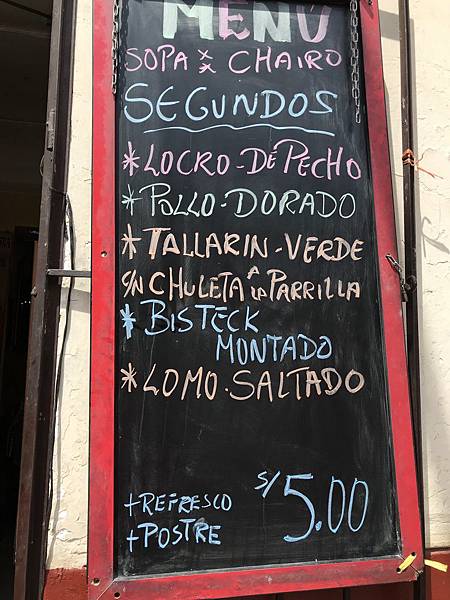 MENÚ
SOPA ** CHAIRO
SEGUNDOS
* LOCRO-DE PECHO
* POLLO-DORADO
* TALLARIN-VERDE
CN CHULETA A LA PARRILLA
* BISTECK
MONTADO
* LOMO-SALTADO
+REFRESCO
+POSTRE
S/5.00